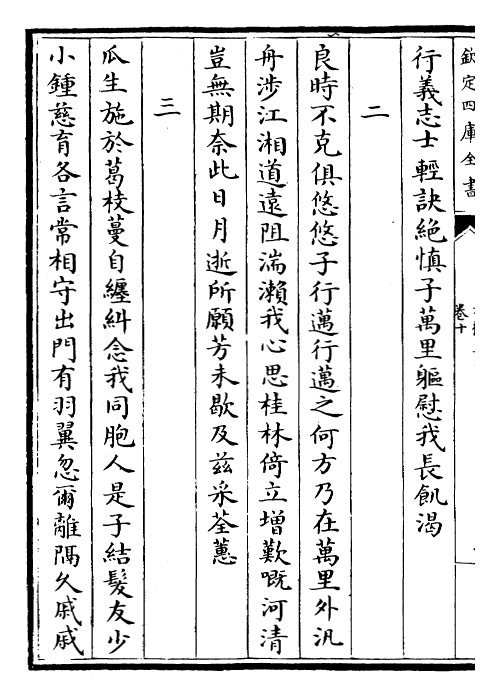 欽定四庫全書
卷十
行義志士輕訣絶慎子萬里軀慰我長飢渴
二
良時不克俱悠悠子行邁行邁之何方乃在萬里外汎
舟涉江湘道遠阻湍瀨我心思桂林倚立增歎嘅河清
豈無期奈此日月逝所願芳未歇及兹采荃蕙
三
瓜生施於葛枝蔓自纏糾念我同胞人是子結髮友少
小鍾慈育各言常相守出門有羽翼忽爾離隔久戚戚